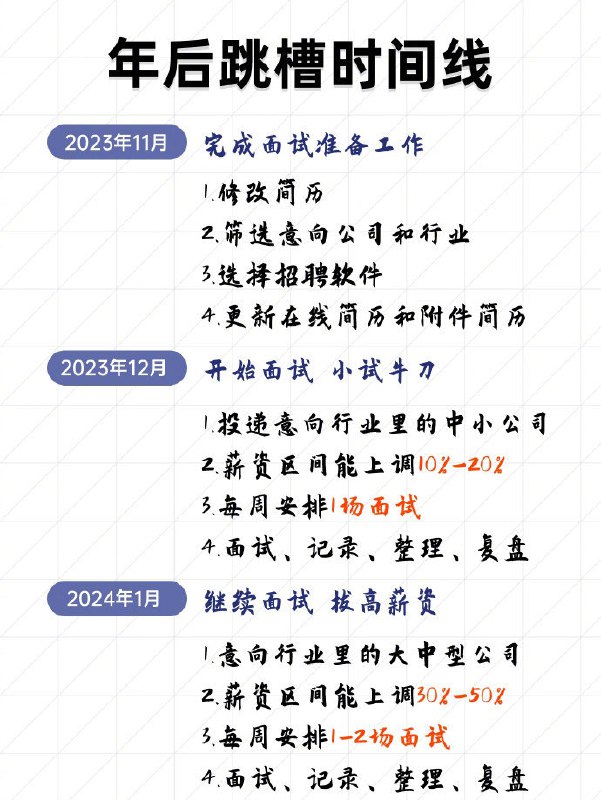 年后跳槽时间线
2023年11月 完成面试准备工作
1.修改简历
2.筛选意向公司和行业
3.选择招聘软件
4.更新在线简历和附件简历
2023年12月 开始面试 小试牛刀
1.投递意向行业里的中小公司
2.薪资区间能上调10%-20%
3.每周安排1场面试
4.面试、记录、整理、复盘
2024年1月 继续面试 拔高薪资
1.意向行业里的大中型公司
2.薪资区间能上调30%-50%
3.每周安排1-2场面试
4.面试、记录、整理、复盘